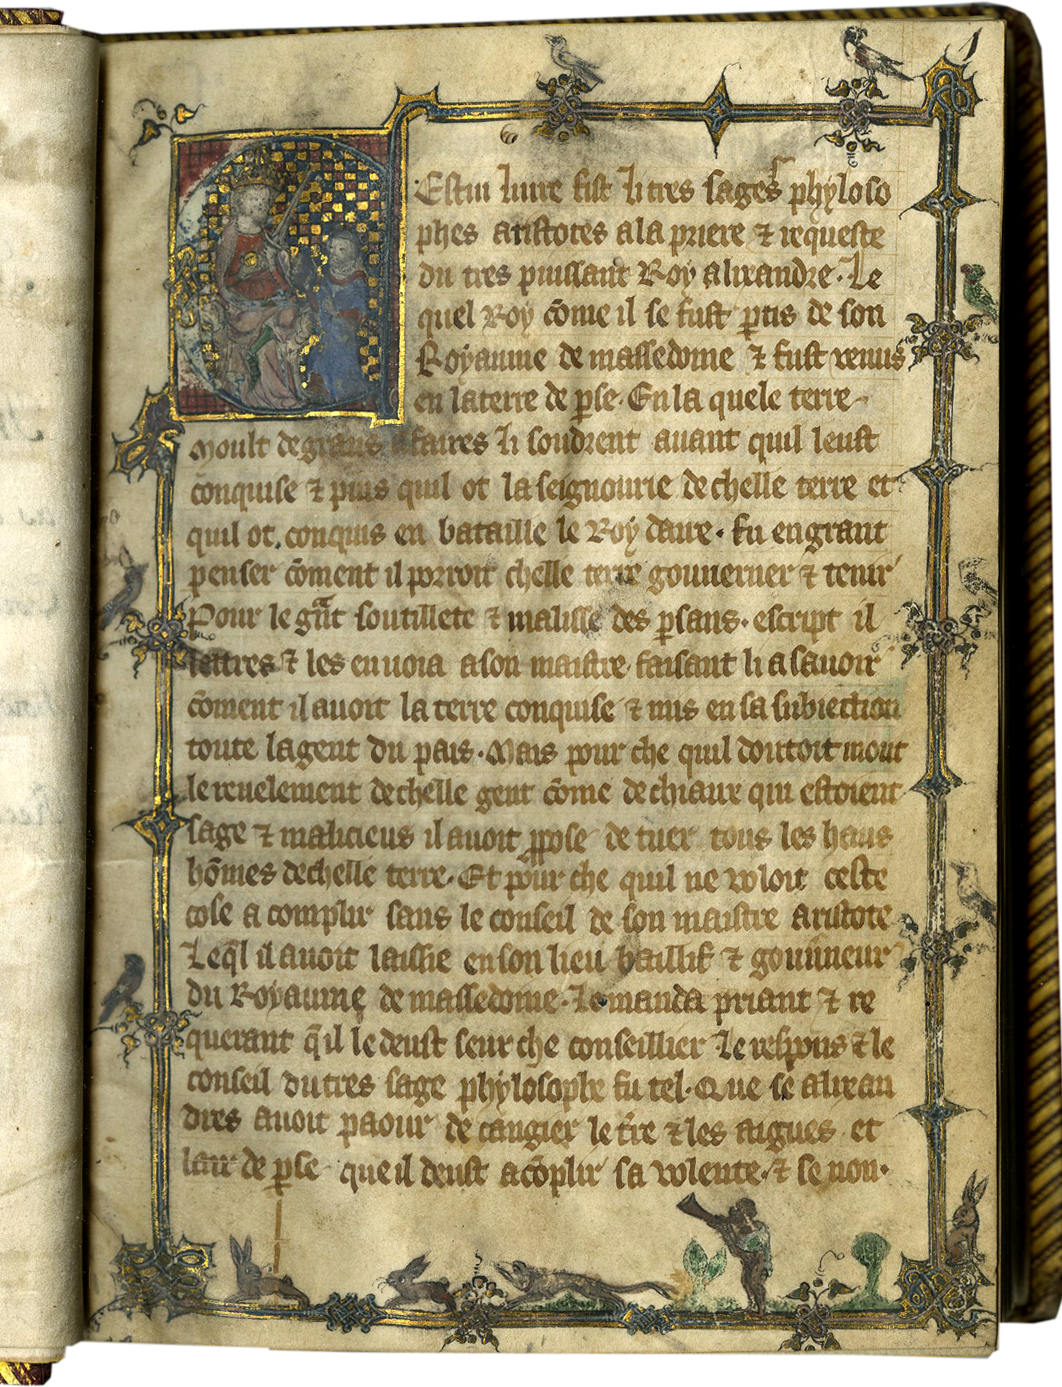 Cestui liure fist li tres sages phyloso
phes aristotes ala priere ⁊ requeste
du tres puissant Roy alixandre. Le
quel Roy cōme il se fust ptis de son
Royaume de massedoine ⁊ fust venus
en laterre de pse. En la quele terre
moult de grans affaires li sourdrent auant quil leust
cōquise ⁊ puis quil ot la seignourie dechelle terre et
quil ot conquis en bataille le Roy daire. fu en grant
penser cōment il porroit chelle terre gouuerner ⁊ tenir
Pour le gnt soutillete ⁊ malisse des psans. escript il
lettres ⁊ les enuoia a son maistre faisant li a sauoir
cōment il auoit la terre conquise ⁊ mis en sa subiection
toute lagent du pais. Mais pour che quil doutoit mout
le reuelement dechelle gent cōme de chiaux qui estoient
sage ⁊ malicieus il auoit ppose de tuer tous les haus
hōmes dechelle terre. Et pour che quil ne voloit ceste
cose a complir sans le conseil de son maistre aristote
Leql il auoit laissie en son lieu baillif ⁊ gouūneur
du Royaume de massedoine. Le manda priant ⁊ re
querant q̄il le deust seur che conseillier Le respons ⁊ le
conseil dutres sage phylosophe fu tel. Que se alixan
dres auoit paour de cangier le tre ⁊ les aigues et
lair de pse que il deust acōplir sa volente. ⁊ se non.